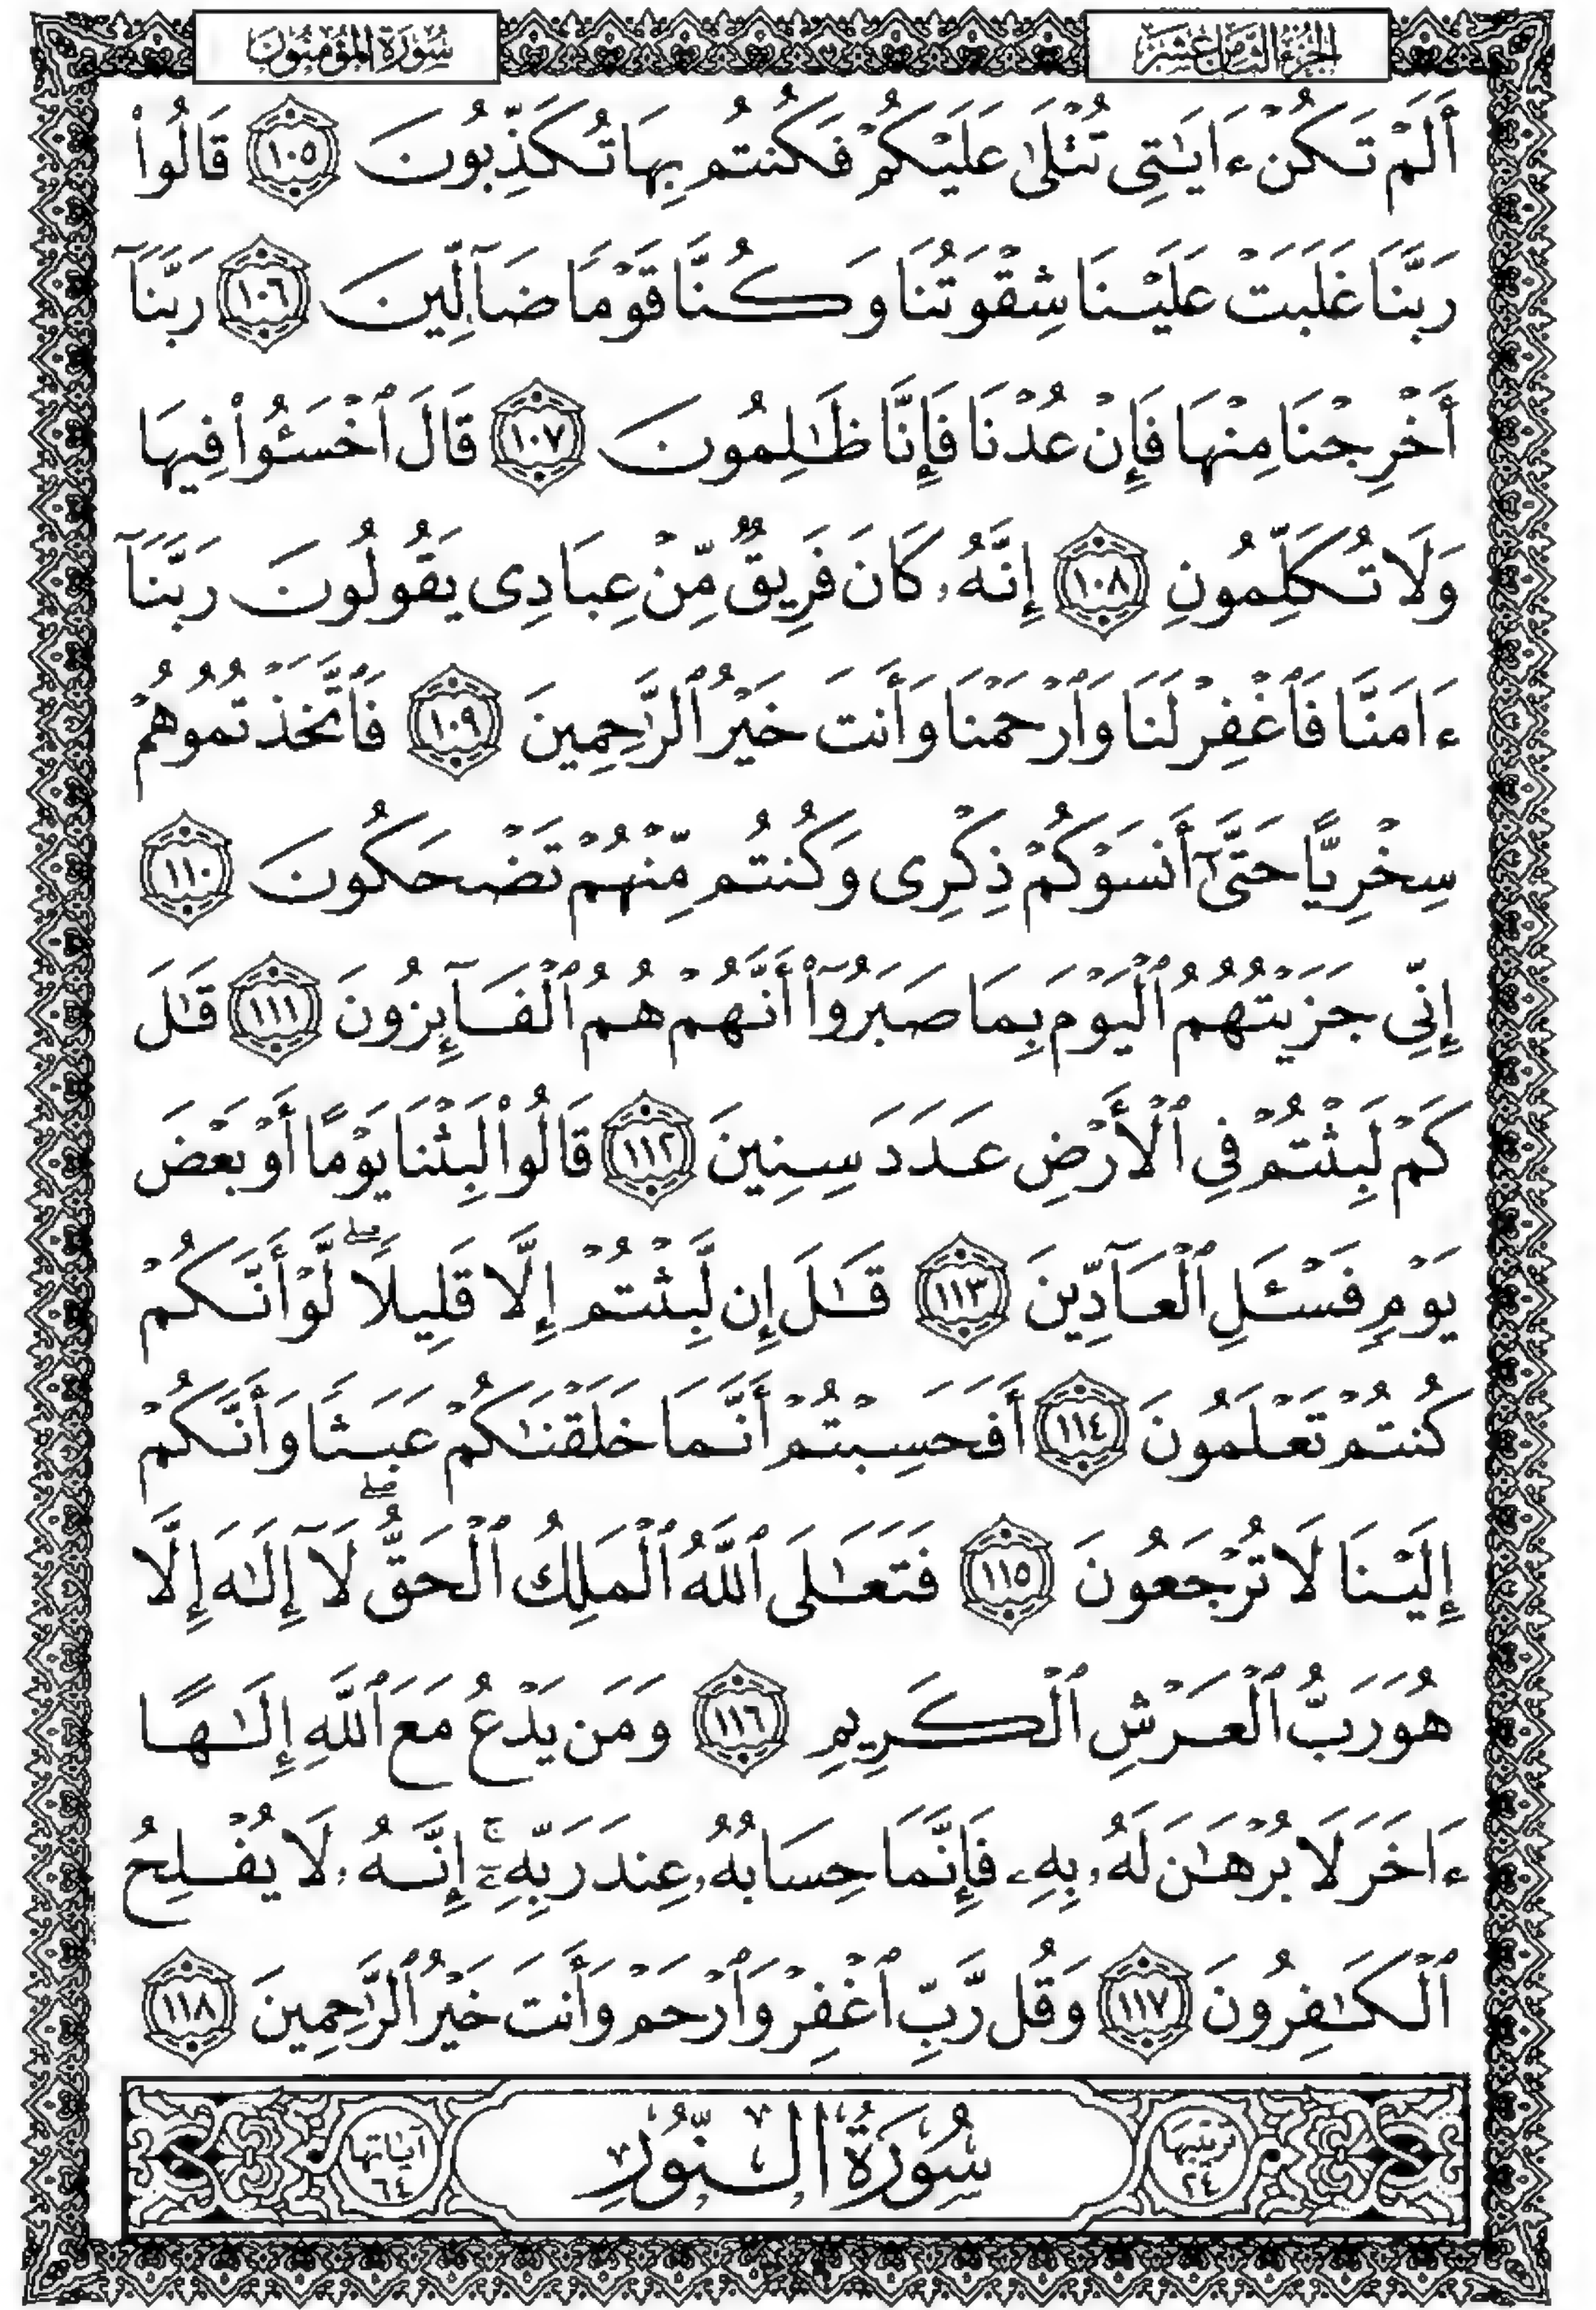 الجزء الثامن عشر
سورة المؤمنون
أَلَمْ تَكُنْ ءَايَٰتِى تُتْلَىٰ عَلَيْكُمْ فَكُنتُم بِهَا تُكَذِّبُونَ ١٠٥ قَالُوا۟
رَبَّنَا غَلَبَتْ عَلَيْنَا شِقْوَتُنَا وَكُنَّا قَوْمًا ضَآلِّينَ ١٠٦ رَبَّنَآ
أَخْرِجْنَا مِنْهَا فَإِنْ عُدْنَا فَإِنَّا ظَٰلِمُونَ ١٠٧ قَالَ ٱخْسَـُٔوا۟ فِيهَا
وَلَا تُكَلِّمُونِ ١٠٨ إِنَّهُۥ كَانَ فَرِيقٌ مِّنْ عِبَادِى يَقُولُونَ رَبَّنَآ
ءَامَنَّا فَٱغْفِرْ لَنَا وَٱرْحَمْنَا وَأَنتَ خَيْرُ ٱلرَّٰحِمِينَ ١٠٩ فَٱتَّخَذْتُمُوهُمْ
سِخْرِيًّا حَتَّىٰٓ أَنسَوْكُمْ ذِكْرِى وَكُنتُم مِّنْهُمْ تَضْحَكُونَ ١١٠
إِنِّى جَزَيْتُهُمُ ٱلْيَوْمَ بِمَا صَبَرُوٓا۟ أَنَّهُمْ هُمُ ٱلْفَآئِزُونَ ١١١ قَٰلَ
كَمْ لَبِثْتُمْ فِى ٱلْأَرْضِ عَدَدَ سِنِينَ ١١٢ قَالُوا۟ لَبِثْنَا يَوْمًا أَوْ بَعْضَ
يَوْمٍ فَسْـَٔلِ ٱلْعَآدِّينَ ١١٣ قَٰلَ إِن لَّبِثْتُمْ إِلَّا قَلِيلًا ۖ لَّوْ أَنَّكُمْ
كُنتُمْ تَعْلَمُونَ ١١٤ أَفَحَسِبْتُمْ أَنَّمَا خَلَقْنَٰكُمْ عَبَثًا وَأَنَّكُمْ
إِلَيْنَا لَا تُرْجَعُونَ ١١٥ فَتَعَٰلَى ٱللَّهُ ٱلْمَلِكُ ٱلْحَقُّ ۖ لَآ إِلَٰهَ إِلَّا
هُوَ رَبُّ ٱلْعَرْشِ ٱلْكَرِيمِ ١١٦ وَمَن يَدْعُ مَعَ ٱللَّهِ إِلَٰهًا
ءَاخَرَ لَا بُرْهَٰنَ لَهُۥ بِهِۦ فَإِنَّمَا حِسَابُهُۥ عِندَ رَبِّهِۦٓ ۚ إِنَّهُۥ لَا يُفْلِحُ
ٱلْكَٰفِرُونَ ١١٧ وَقُل رَّبِّ ٱغْفِرْ وَٱرْحَمْ وَأَنتَ خَيْرُ ٱلرَّٰحِمِينَ ١١٨
ترتيبها ٢٤ سُورَةُ النُّورِ آياتها ٦٤